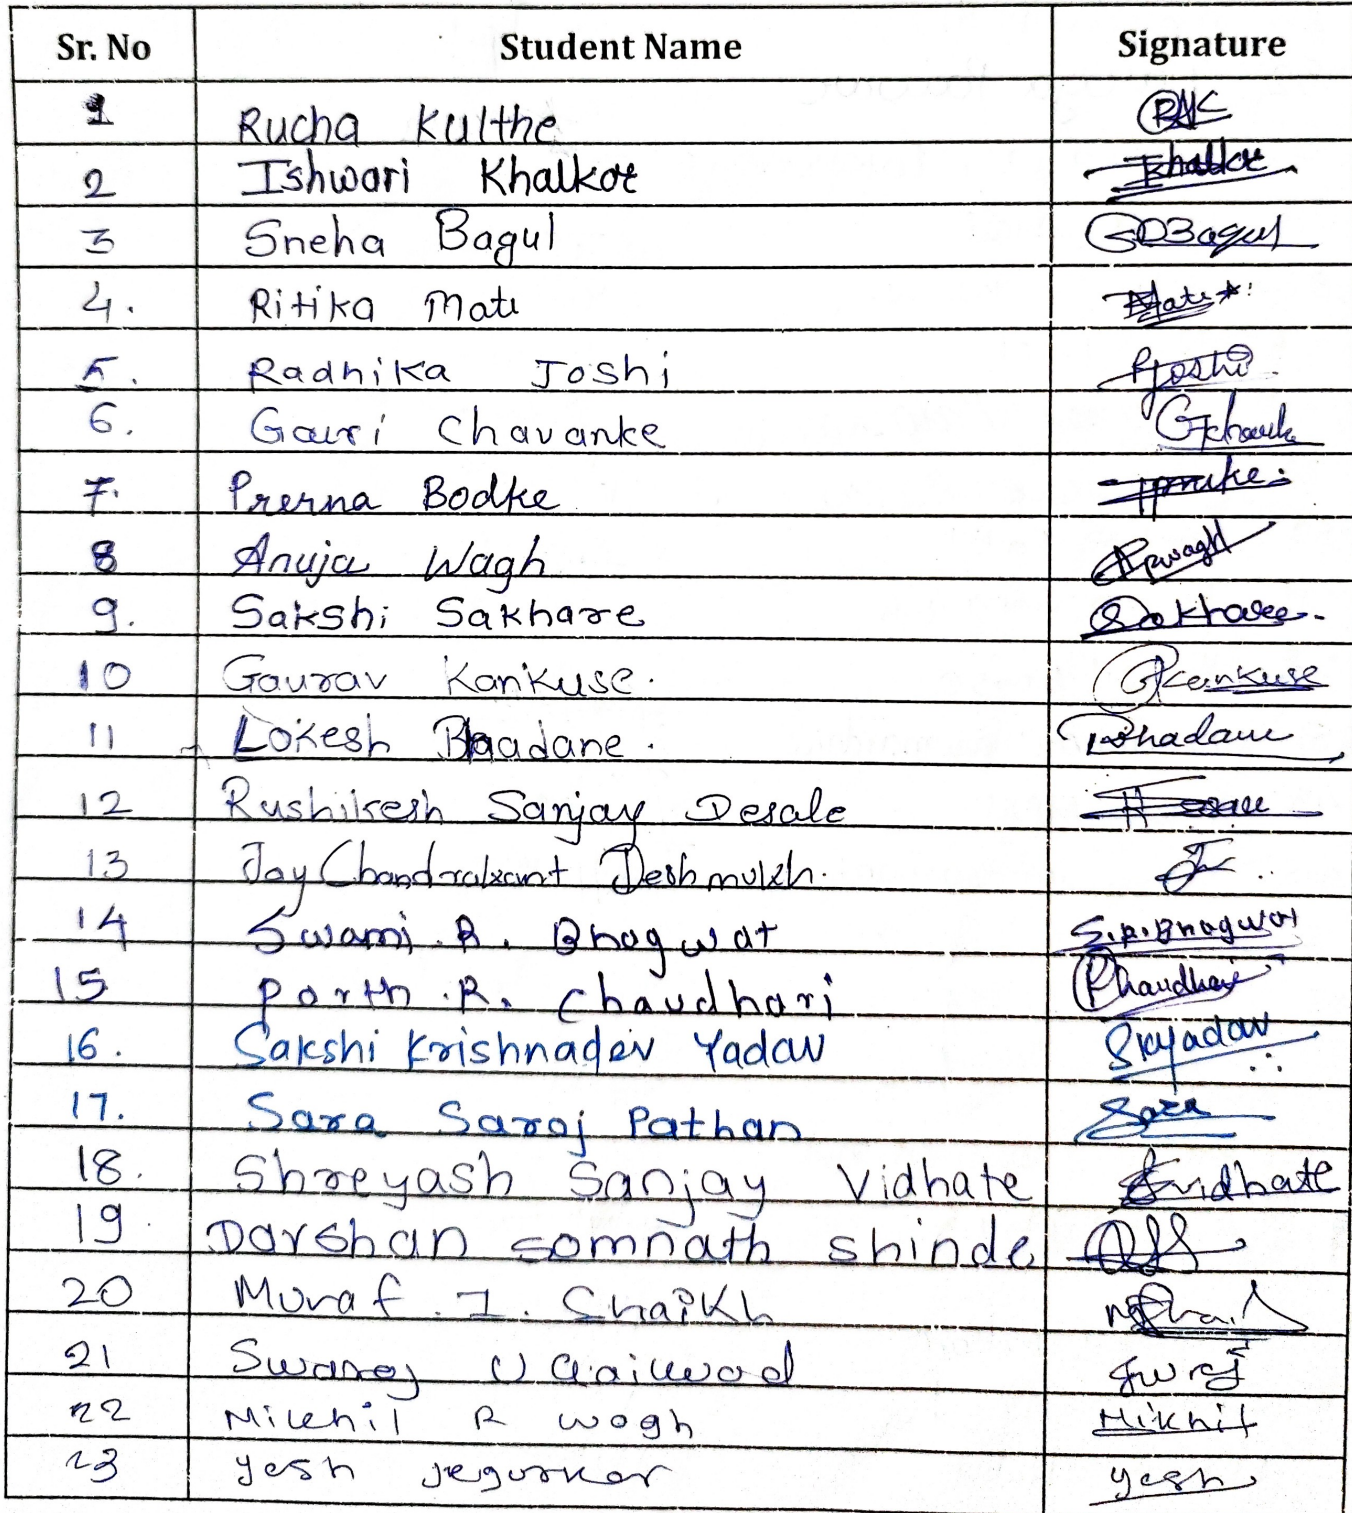 Sr. No Student Name Signature
1 Rucha Kulthe
2 Ishwari Khalkar Khalkar
3 Sneha Bagul Bagul
4. Ritika Mate Mate
5. Radhika Joshi Joshi
6. Gauri Chavanke
7. Prerna Bodke
8 Anuja Wagh Wagh
9. Sakshi Sakhare Sakharee.
10 Gaurav Kankuse. GKankuse
11 Lokesh Bhadane. Bhadane
12 Rushikesh Sanjay Desale
13 Jay Chandrakant Deshmukh.
14 Swami. R. Bhagwat S.R.Bhagwat
15 Parth .R. Chaudhari Chaudhari
16. Sakshi Krishnadev Yadav SKYadav
17. Sara Saroj Pathan Sara
18. Shreyash Sanjay Vidhate Svidhate
19. Darshan somnath shinde
20 Munaf . I. Shaikh
21 Swaraj V Gaikwad
22 Nikhil R wagh Nikhil
23 yesh jegurkar yesh